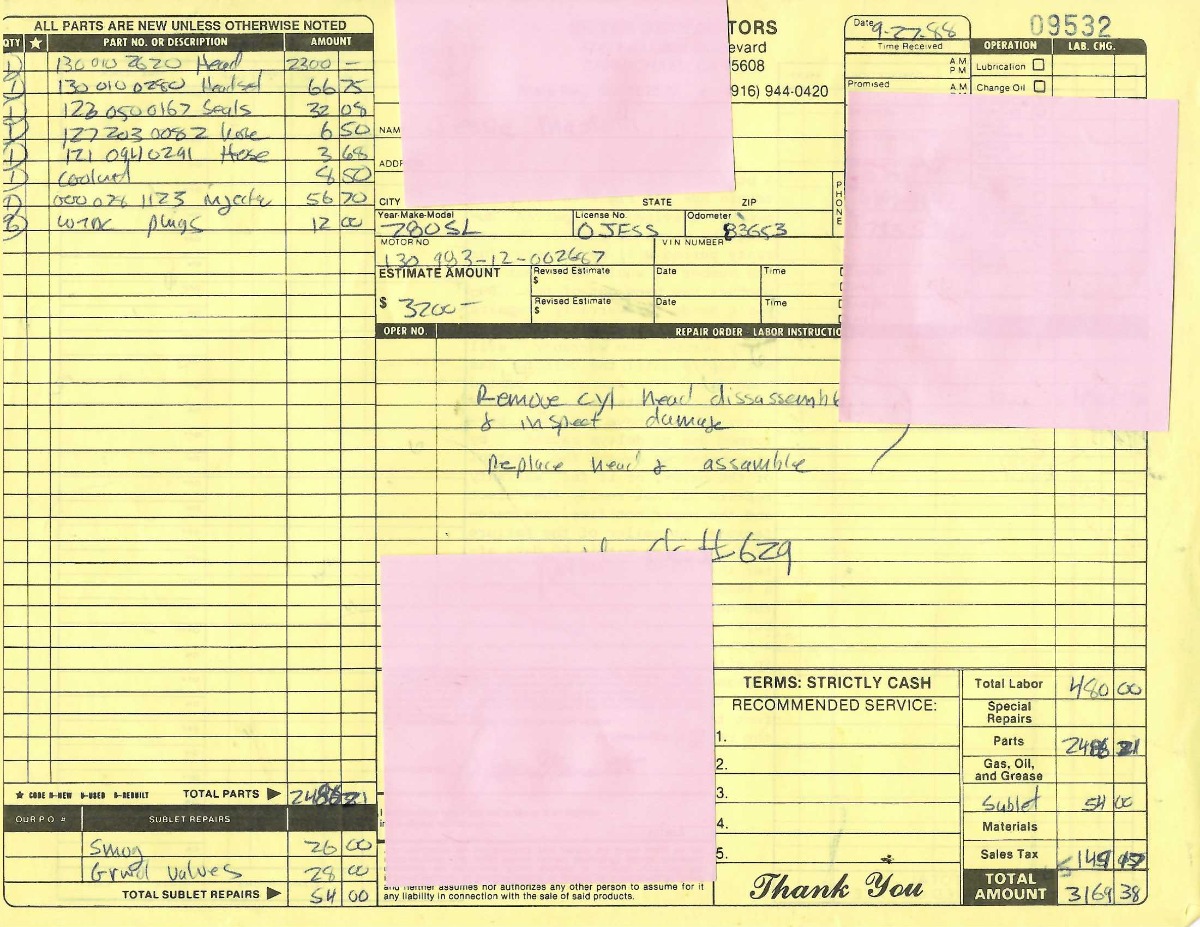 ALL PARTS ARE NEW UNLESS OTHERWISE NOTED
QTY ★ PART NO. OR DESCRIPTION AMOUNT
1 130 010 2620 Head 2300 –
1 130 010 0280 Headset 66 75
1 123 050 0167 Seals 32 08
1 127 203 0082 Hose 6 50
1 121 094 0291 Hose 3 68
1 Coolant 8 50
1 000 078 1123 injector 56 70
plugs 12 00
★ CODE N-NEW U-USED R-REBUILT TOTAL PARTS ▶
OUR P.O. # SUBLET REPAIRS
Smog 26 00
Grind Valves 28 00
TOTAL SUBLET REPAIRS ▶ 54 00
TORS
evard
5608
916) 944-0420
NAM
ADDR
CITY STATE ZIP
PHONE
Year-Make-Model License No. Odometer
280SL OJESS 83653
MOTOR NO VIN NUMBER
130 983-12-002687
ESTIMATE AMOUNT Revised Estimate Date Time
$
$ 3200 – Revised Estimate Date Time
$
OPER NO. REPAIR ORDER - LABOR INSTRUCTIO
Remove cyl head dissassemble
& inspect damage
Replace head & assamble
#629
Date 9-27-88 09532
Time Received OPERATION LAB. CHG.
AM
PM Lubrication
Promised AM Change Oil
and neither assumes nor authorizes any other person to assume for it
any liability in connection with the sale of said products.
TERMS: STRICTLY CASH
RECOMMENDED SERVICE:
1.
2.
3.
4.
5.
Thank You
Total Labor 480 00
Special Repairs
Parts
Gas, Oil, and Grease
Sublet 54 00
Materials
Sales Tax
TOTAL AMOUNT 3169 38